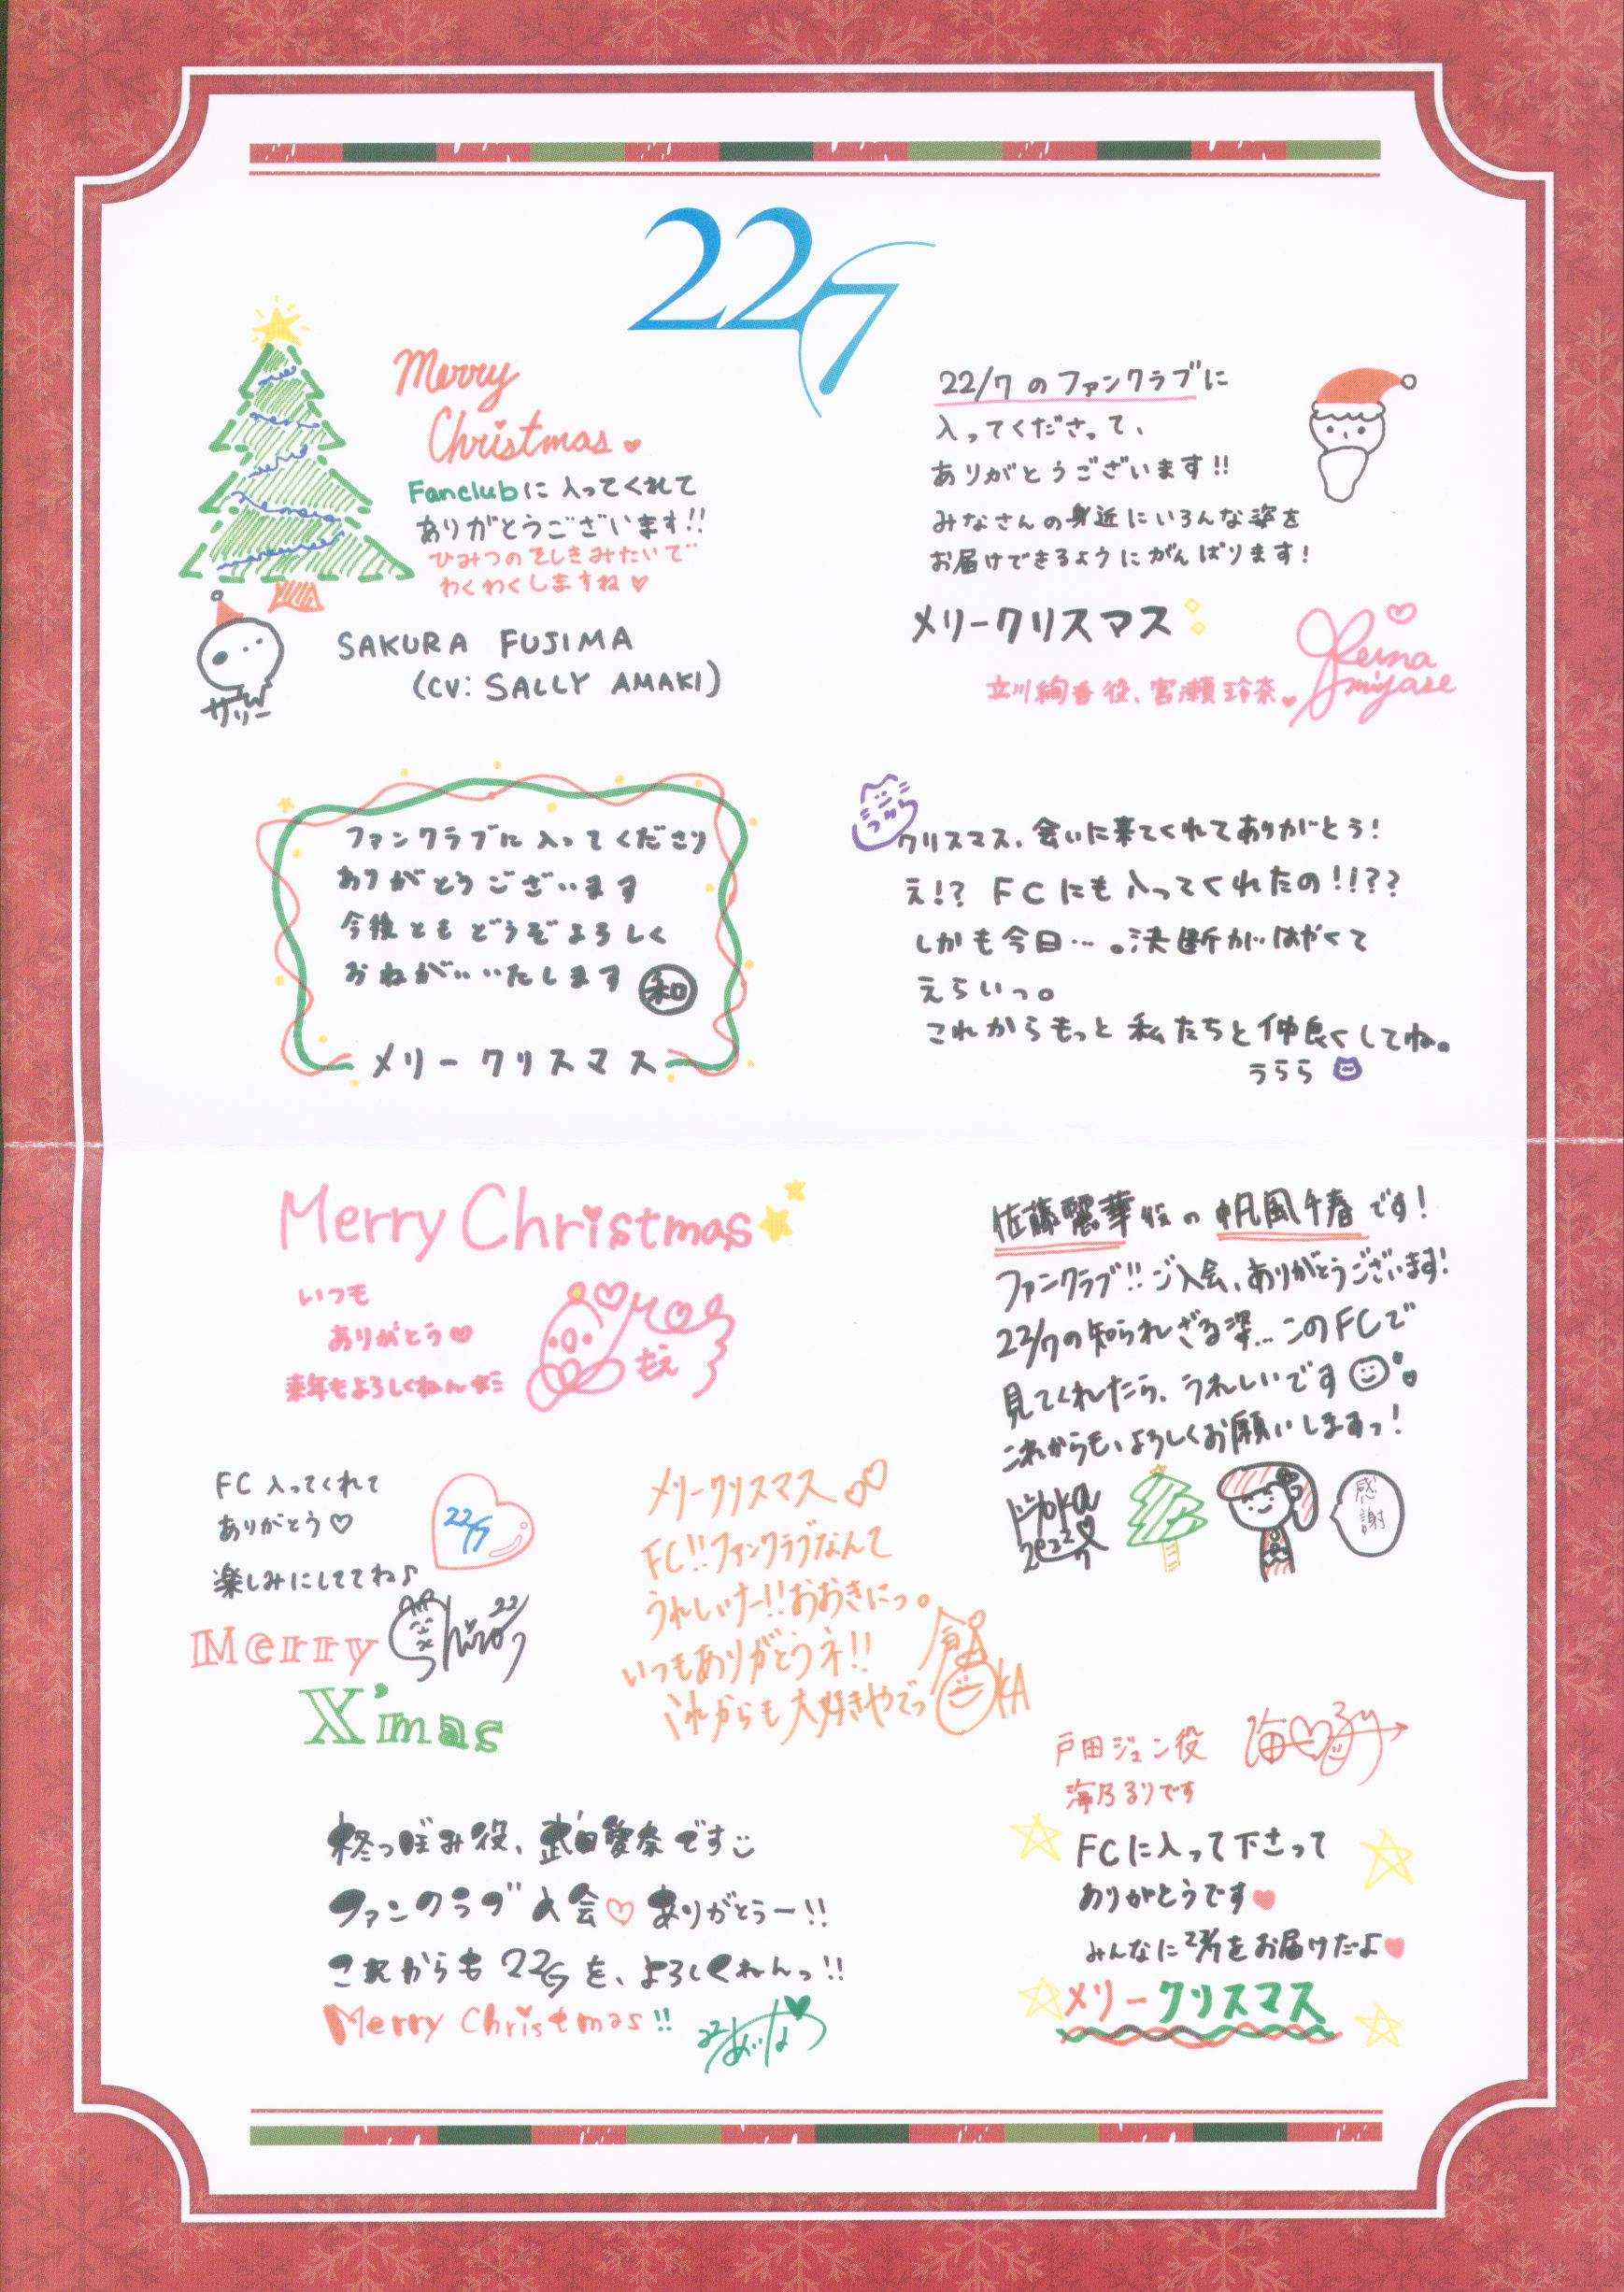 22/7
Merry
Christmas
Fanclubに入ってくれて
ありがとうございます!!
ひみつのそしきみたいで
わくわくしますね♡
SAKURA FUJIMA
(CV: SALLY AMAKI)
サリー
22/7のファンクラブに
入ってくださって、
ありがとうございます!!
みなさんの身近にいろんな姿を
お届けできるようにがんばります!
メリークリスマス
立川絢香役、宮瀬玲奈
Reina
miyase
ファンクラブに入ってくださり
ありがとうございます
今後ともどうぞよろしく
おねがいいたします 和
メリークリスマス
クリスマス、会いに来てくれてありがとう!
え!? FCにも入ってくれたの!!??
しかも今日…。決断がはやくて
えらいっ。
これからもっと私たちと仲良くしてね。
うらら
Merry Christmas
いつも
ありがとう♡
来年もよろしくねん
もえ
佐藤麗華役の帆風千春です!
ファンクラブ!!ご入会、ありがとうございます!
22/7の知られざる姿…このFCで
見てくれたら、うれしいです
これからも、よろしくお願いしまるっ!
感謝
FC入ってくれて
ありがとう♡
楽しみにしててね♪
22/7
Merry
Chiro 22/7
X'mas
メリークリスマス
FC!!ファンクラブなんて
うれしいナー!!おおきにっ。
いつもありがとうネ!!
これからも大好きやでっ
戸田ジュン役
海乃るりです
FCに入って下さって
ありがとうです♥
みんなに22/7をお届けだよ♥
メリークリスマス
柊つぼみ役、武田愛奈です
ファンクラブ入会♡ありがとうー!!
これからも22/7を、よろしくねんっ!!
Merry Christmas!!
22/7 あいな